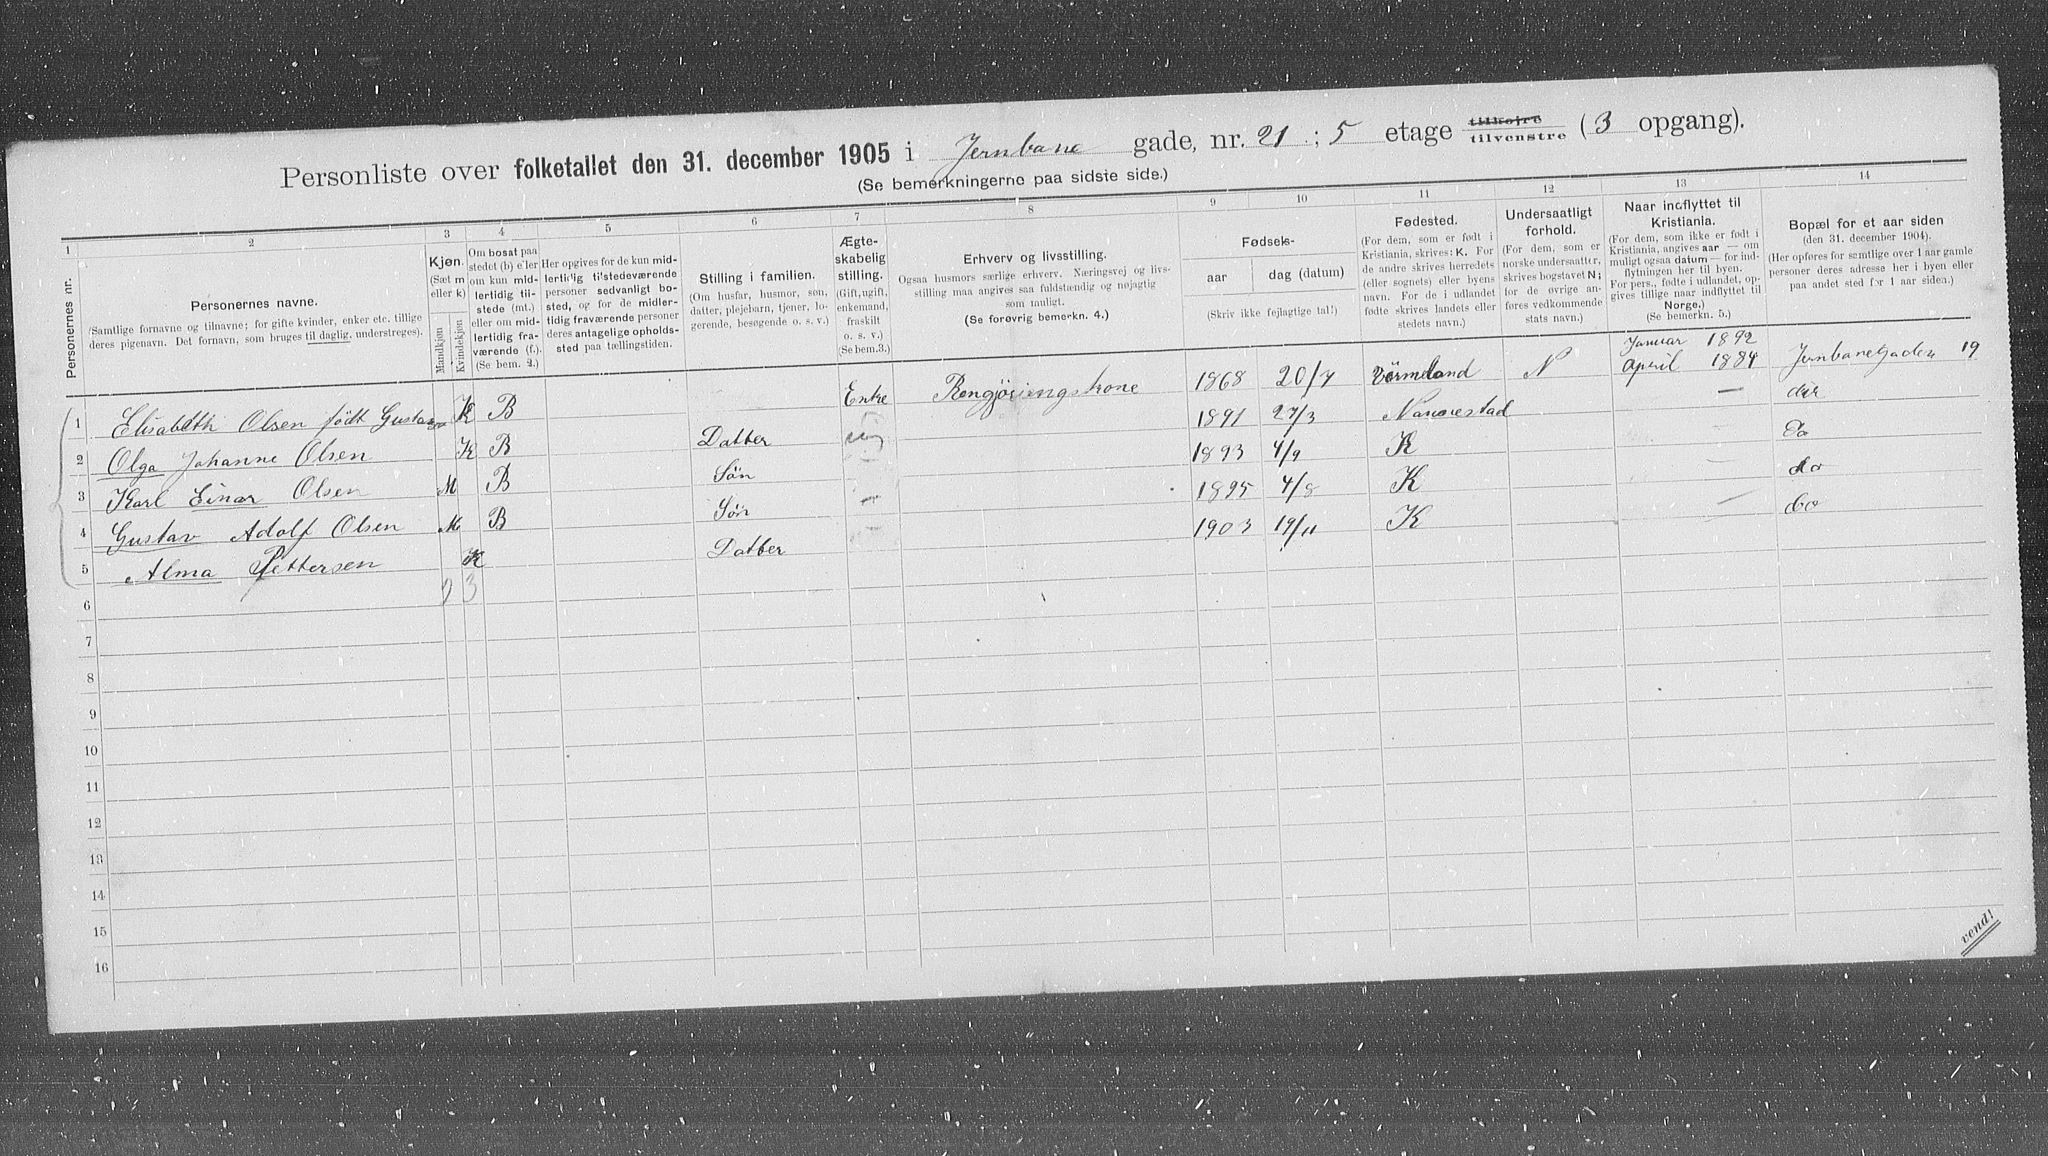 Personliste over folketallet den 31. december 1905 i Jernbane gade, nr. 21 ; 5 etage tilhøjre tilvenstre ( 3 opgang).
(Se bemerkningerne paa sidste side.)
1 2 3 4 5 6 7 8 9 10 11 12 13 14
Personernes nr.
Personernes navne.
(Samtlige fornavne og tilnavne; for gifte kvinder, enker etc. tillige
deres pigenavn. Det fornavn, som bruges til daglig, understreges).
Kjøn.
(Sæt m
eller k)
Mandkjøn
Kvindekjøn
Om bosat paa
stedet (b) eller
om kun mid-
lertidig til-
stede (mt.)
eller om mid-
lertidig fra-
værende (f.)
(Se bem. 2.)
Her opgives for de kun mid-
lertidig tilstedeværende
personer sedvanligt bo-
sted, og for de midler-
tidig fraværende personer
deres antagelige opholds-
sted paa tællingstiden.
Stilling i familien.
(Om husfar, husmor, søn,
datter, plejebarn, tjener, lo-
gerende, besøgende o. s. v.)
Ægte-
skabelig
stilling.
(Gift, ugift,
enkemand,
fraskilt
o. s. v.)
(Se bem.3.)
Erhverv og livsstilling.
Ogsaa husmors særlige erhverv. Næringsvej og livs-
stilling maa angives saa fuldstændig og nøjagtig
som tauligt.
(Se forøvrig bemerkn. 4.)
Fødsels-
aar
dag (datum)
(Skriv ikke fejlagtige tal!)
Fødested.
(For dem, som er født i
Kristiania, skrives: K. For
de andre skrives herredets
(eller sognets) eller byens
navn. For de i udlandet
fødte skrives landets eller
stedets navn.)
Undersaatligt
forhold.
(For dem, som er
norske undersaatter,
skrives bogstavet N;
for de øvrige an-
føres vedkommende
stats navn.)
Naar indflyttet til
Kristiania.
(For dem, som ikke er født i
Kristiania, angives aar — om
muligt ogsaa datum — for ind-
flytningen her til byen.
For pers., fødte i udlandet, op-
gives tillige naar indflyttet til
Norge.)
(Se bemerkn. 5.)
Bopæl for et aar siden
(den 31. december 1904).
(Her opføres for samtlige over 1 aar gamle
personer deres adresse her i byen eller
paa andet sted før 1 aar siden.)
1 Elisabeth Olsen født K B Enke Rengjøringskone 1868 20/7 Värmeland N Januar 1892 April 1884 Jernbanegaden 19
2 Olga Johanne Olsen K B Datter 1891 27/3 — der
3 Karl Einar Olsen M B Søn 1893 4/9 K do
4 Gustav Adolf Olsen M B Søn 1895 4/8 K do
5 Alma Pettersen K Datter 1903 19/11 K — do
6 2 3
7
8
9
10
11
12
13
14
15
16
vend!